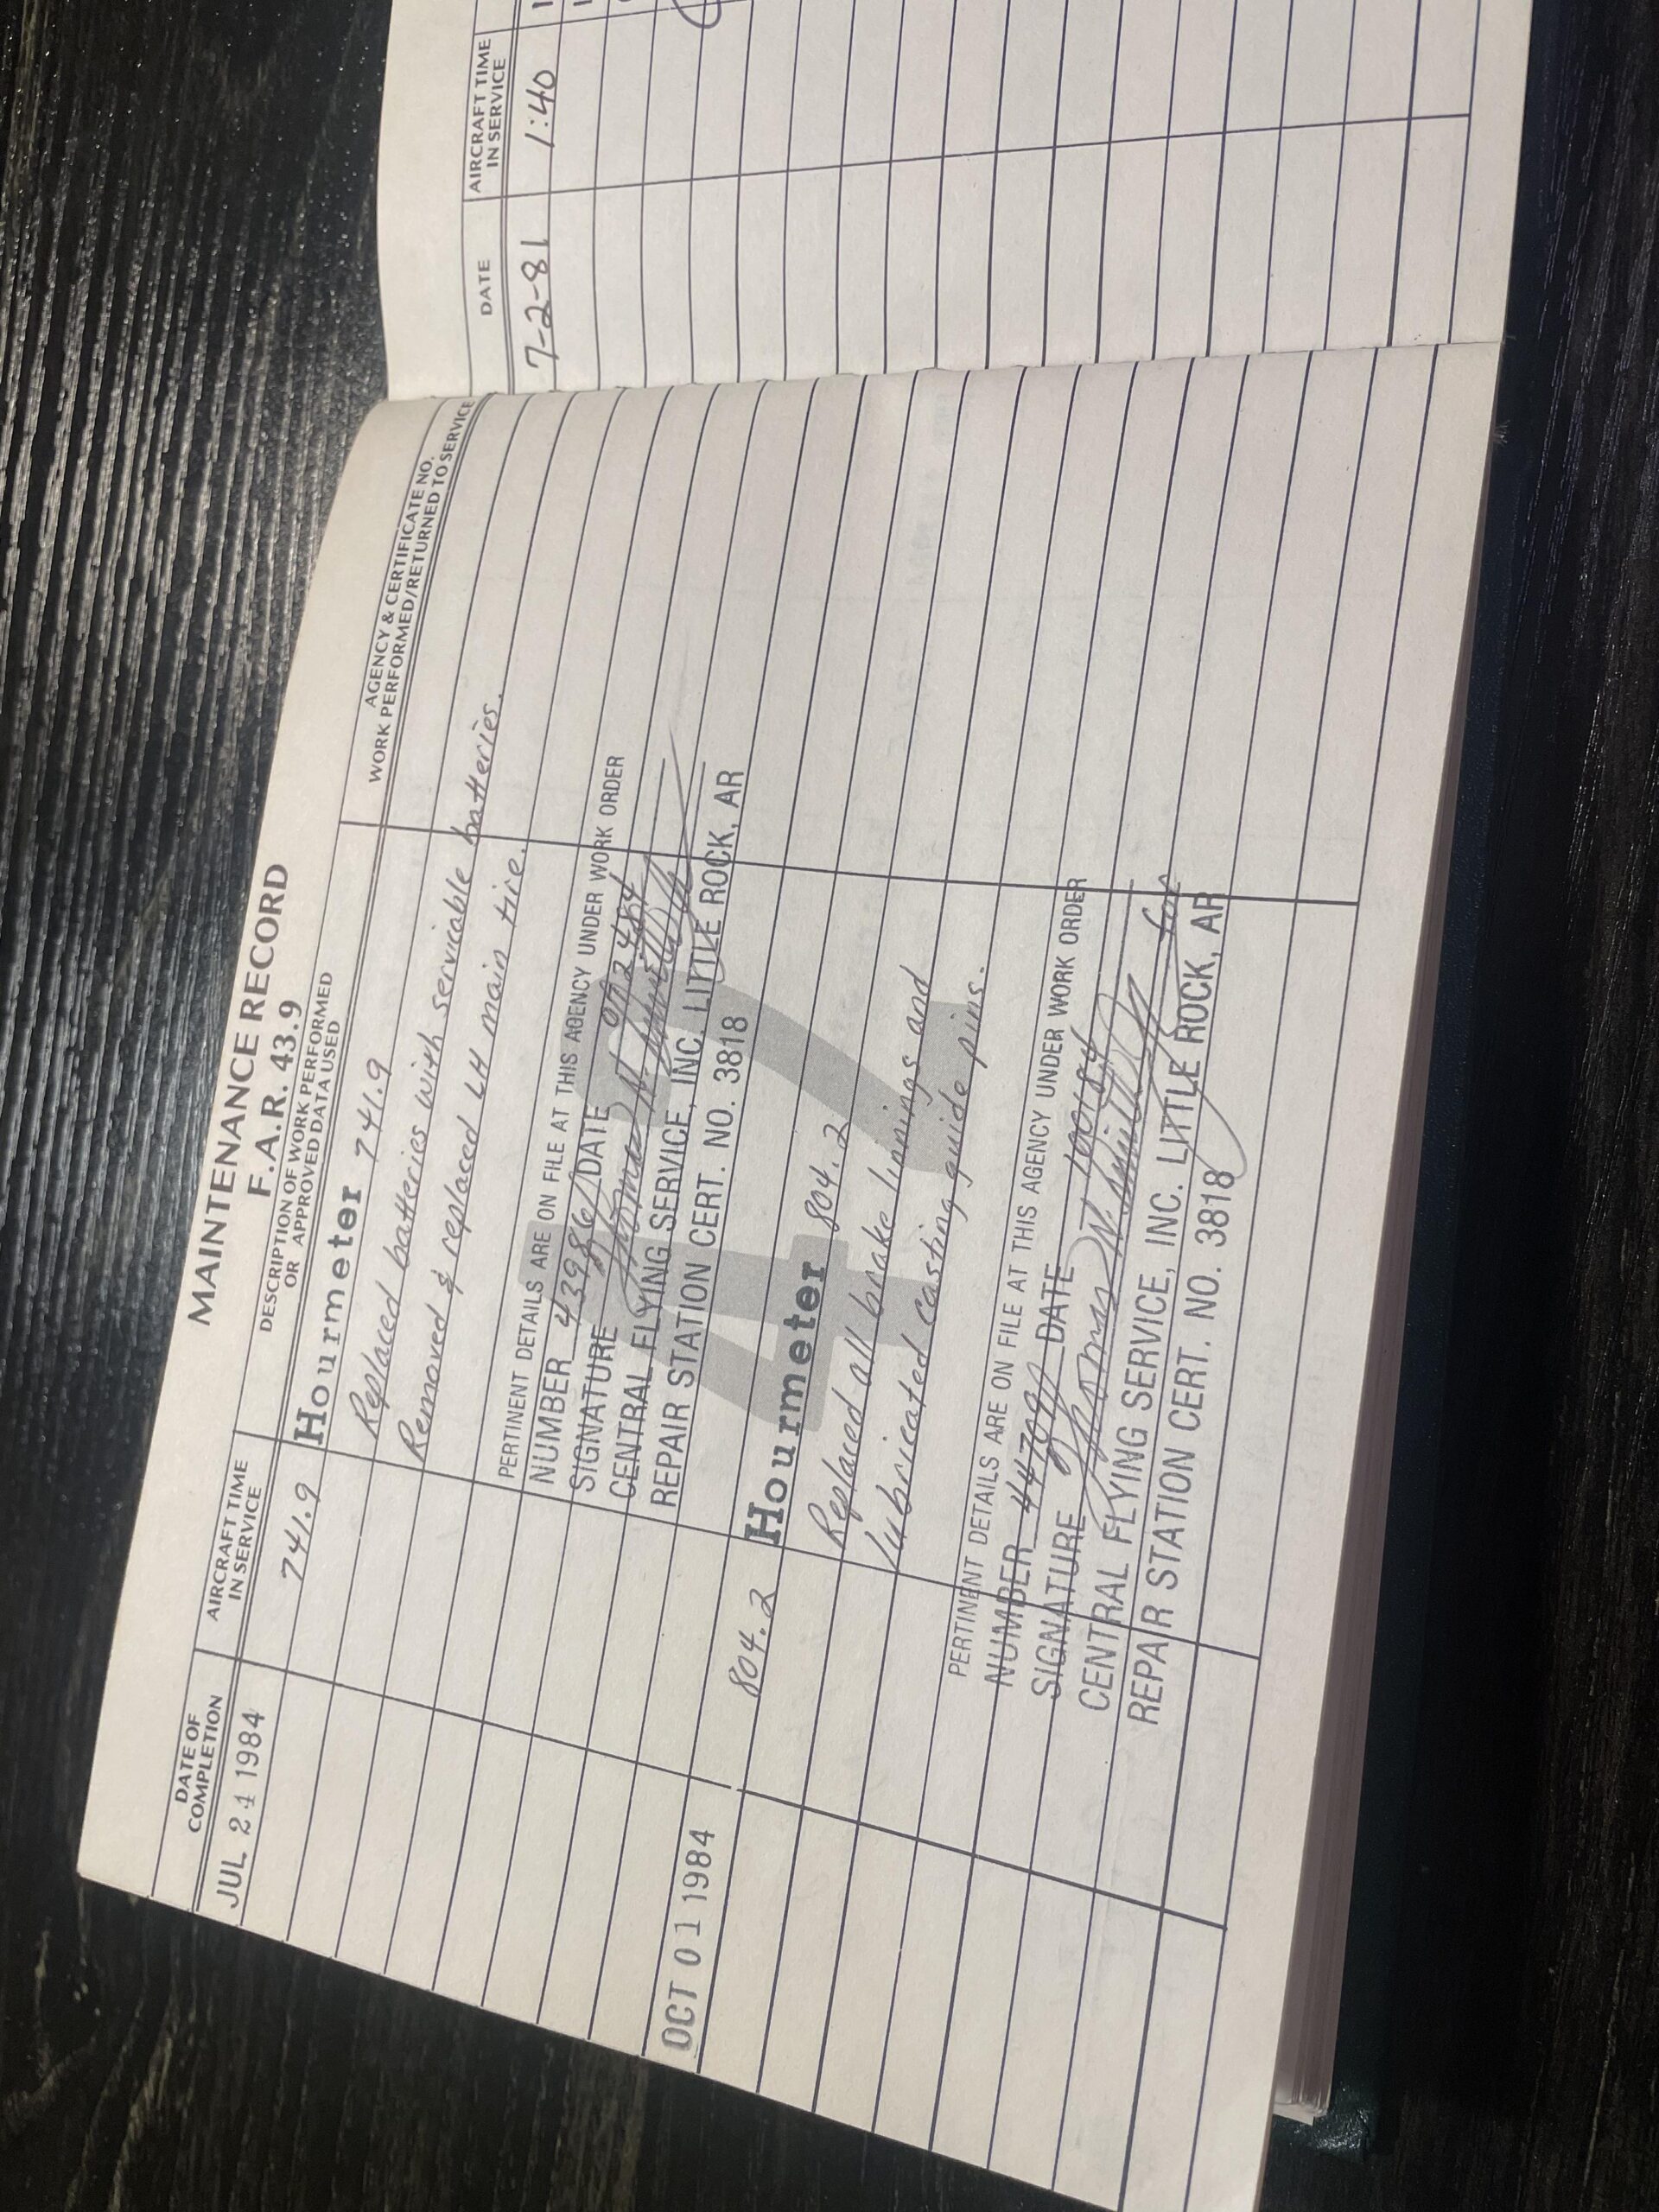 MAINTENANCE RECORD
F.A.R. 43.9
DATE OF
COMPLETION
AIRCRAFT TIME
IN SERVICE
DESCRIPTION OF WORK PERFORMED
OR APPROVED DATA USED
AGENCY & CERTIFICATE NO.
WORK PERFORMED/RETURNED TO SERVICE
JUL 24 1984
741.9 Hourmeter 741.9
Replaced batteries with servicable batteries.
Removed & replaced LH main tire.
PERTINENT DETAILS ARE ON FILE AT THIS AGENCY UNDER WORK ORDER
NUMBER 43986 DATE 072484
SIGNATURE Thomas N.
CENTRAL FLYING SERVICE, INC. LITTLE ROCK, AR
REPAIR STATION CERT. NO. 3818
47
OCT 01 1984
804.2 Hourmeter 804.2
Replaced all brake linings and
lubricated casting guide pins.
PERTINENT DETAILS ARE ON FILE AT THIS AGENCY UNDER WORK ORDER
NUMBER 44709 DATE 100184
SIGNATURE Thomas N. for
CENTRAL FLYING SERVICE, INC. LITTLE ROCK, AR
REPAIR STATION CERT. NO. 3818
DATE
AIRCRAFT TIME
IN SERVICE
7-2-81 1:40